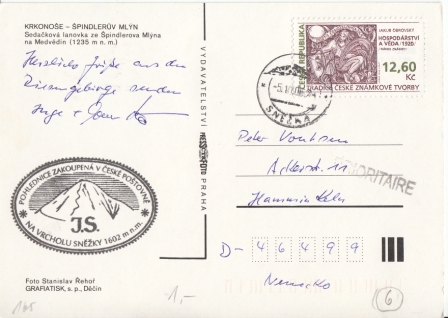 KRKONOŠE – ŠPINDLERŮV MLÝN
Sedačková lanovka ze Špindlerova Mlýna
na Medvědín (1235 m n. m.)
Herzliche Grüße aus dem
Riesengebirge senden
Inge +
POHLEDNICE ZAKOUPENÁ V ČESKÉ POŠTOVNĚ
J.S.
NA VRCHOLU SNĚŽKY 1602 m n.m.
Foto Stanislav Řehoř
GRAFIATISK, s. p., Děčín
165
1,-
VYDAVATELSTVÍ PRESSFOTO PRAHA
ČESKÁ REPUBLIKA
JAKUB OBROVSKÝ
HOSPODÁŘSTVÍ
A VĚDA /1920/
12,60
Kč
TRADICE ČESKÉ ZNÁMKOVÉ TVORBY
SNĚŽKA
PRIORITAIRE
Peter
Ackerstr. 11
D- 46499
Nemecko
6